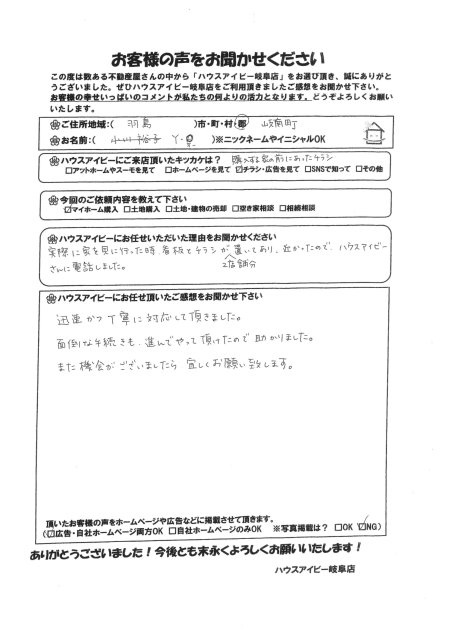 お客様の声をお聞かせください
この度は数ある不動産屋さんの中から「ハウスアイビー岐阜店」をお選び頂き、誠にありがと
うございました。ぜひハウスアイビー岐阜店をご利用頂きましたご感想をお聞かせ下さい。
お客様の幸せいっぱいのコメントが私たちの何よりの活力となります。どうぞよろしくお願い
いたします。
ご住所地域:( 羽島 )市・町・村・郡 岐南町
お名前:( Y・O )※ニックネームやイニシャルOK
ハウスアイビーにご来店頂いたキッカケは? 購入する家の前にあったチラシ
□アットホームやスーモを見て □ホームページを見て ☑チラシ・広告を見て □SNSで知って □その他
今回のご依頼内容を教えて下さい
☑マイホーム購入 □土地購入 □土地・建物の売却 □空き家相談 □相続相談
ハウスアイビーにお任せいただいた理由をお聞かせください
実際に家を見に行った時、看板とチラシが置いてあり、近かったので、ハウスアイビー
さんに電話しました。 2店舗分
ハウスアイビーにお任せ頂いたご感想をお聞かせ下さい
迅速かつ丁寧に対応して頂きました。
面倒な手続きも、進んでやって頂けたので助かりました。
また機会がございましたら宜しくお願い致します。
頂いたお客様の声をホームページや広告などに掲載させて頂きます。
(☑広告・自社ホームページ両方OK □自社ホームページのみOK ※写真掲載は? □OK ☑NG)
ありがとうございました!今後とも末永くよろしくお願いいたします!
ハウスアイビー岐阜店